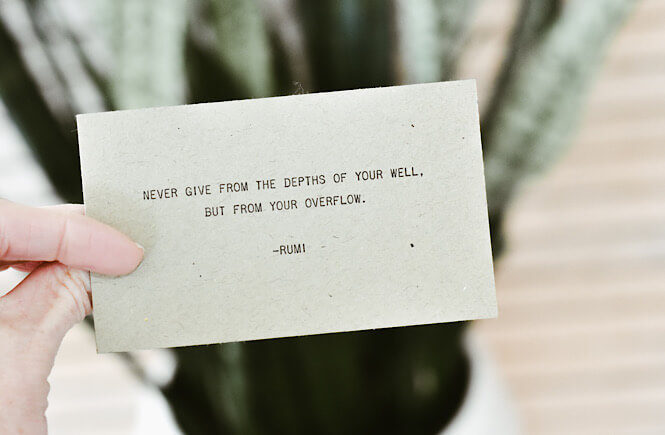 NEVER GIVE FROM THE DEPTHS OF YOUR WELL,
BUT FROM YOUR OVERFLOW.
-RUMI